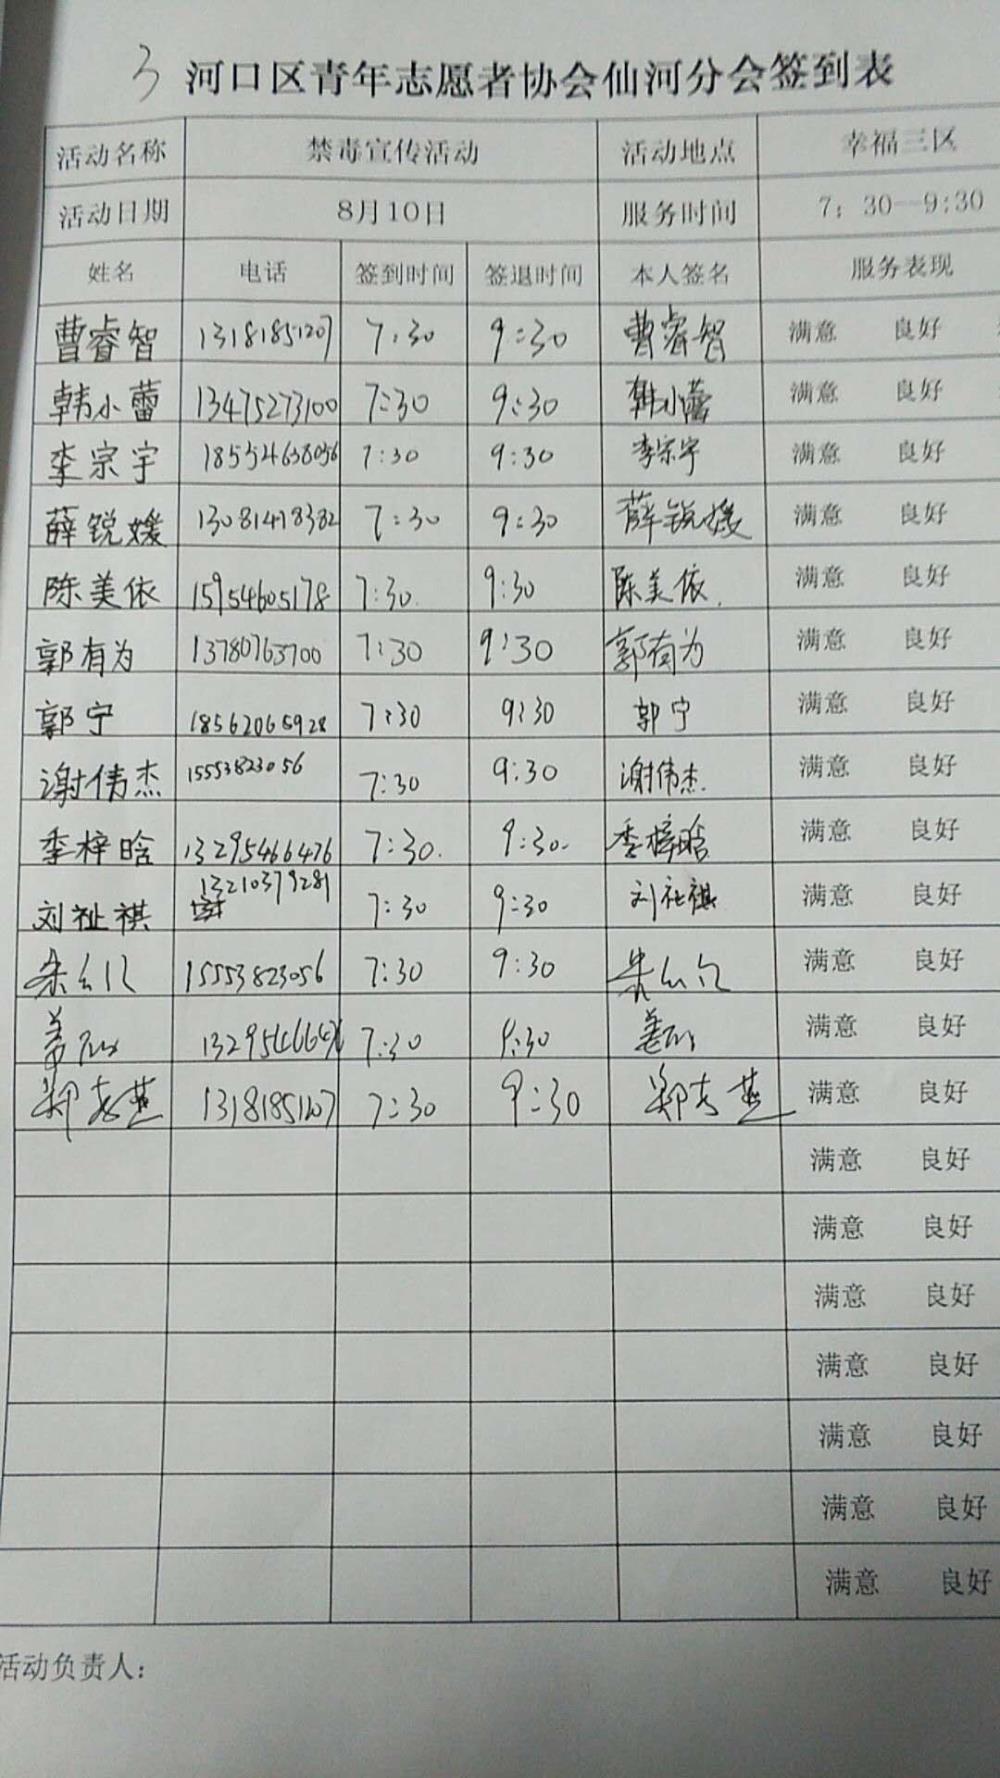 3 河口区青年志愿者协会仙河分会签到表
活动名称 禁毒宣传活动 活动地点 幸福三区
活动日期 8月10日 服务时间 7：30—9:30
姓名 电话 签到时间 签退时间 本人签名 服务表现
曹睿智 13181851207 7:30 9:30 曹睿智 满意 良好
韩小蕾 13475273100 7:30 9:30 韩小蕾 满意 良好
李宗宇 18554638056 7:30 9:30 李宗宇 满意 良好
薛锐媛 13081418382 7:30 9:30 薛锐媛 满意 良好
陈美依 15954605178 7:30 9:30 陈美依 满意 良好
郭有为 13780763700 7:30 9:30 郭有为 满意 良好
郭宁 18562065928 7:30 9:30 郭宁 满意 良好
谢伟杰 15553823056 7:30 9:30 谢伟杰 满意 良好
李梓晗 13295466476 7:30 9:30 李梓晗 满意 良好
刘祉祺 13210379281 7:30 9:30 刘祉祺 满意 良好
15553823056 7:30 9:30 满意 良好
7:30 9:30 满意 良好
郑志燕 13181851207 7:30 9:30 郑志燕 满意 良好
满意 良好
满意 良好
满意 良好
满意 良好
满意 良好
满意 良好
满意 良好
活动负责人：